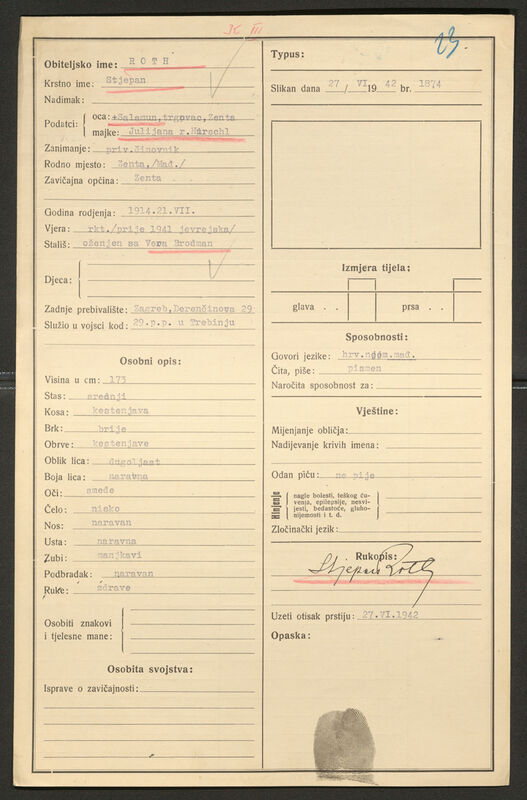 K III
23
Obiteljsko ime: ROTH
Krstno ime: Stjepan
Nadimak:
Podatci: oca: +Salamun, trgovac, Zenta
majke: Julijana r. Hirschl
Zanimanje: priv. činovnik
Rodno mjesto: Zenta, /Mađ./
Zavičajna općina: Zenta
Godina rodjenja: 1914.21.VII.
Vjera: rkt./prije 1941 jevrejska/
Stališ: oženjen sa Vera Brodman
Djeca:
Zadnje prebivalište: Zagreb, Derenčinova 29
Služio u vojsci kod: 29.p.p. u Trebinju
Osobni opis:
Visina u cm: 173
Stas: srednji
Kosa: kestenjava
Brk: brije
Obrve: kestenjave
Oblik lica: dugoljast
Boja lica: naravna
Oči: smeđe
Čelo: nisko
Nos: naravan
Usta: naravna
Zubi: manjkavi
Podbradak: naravan
Ruke: zdrave
Osobiti znakovi
i tjelesne mane:
Osobita svojstva:
Isprave o zavičajnosti:
Typus:
Slikan dana 27/VI 1942 br. 1874
Izmjera tijela:
glava . . prsa . .
Sposobnosti:
Govori jezike: hrv. njem. mađ.
Čita, piše: pismen
Naročita sposobnost za:
Vještine:
Mijenjanje obličja:
Nadijevanje krivih imena:
Odan piću: ne pije
Hinjenje
nagle bolesti, teškog ču-
venja, epilepsije, nesvi-
jesti, bedastoće, gluho-
nijemosti i t. d.
Zločinački jezik:
Rukopis:
Stjepan Roth
Uzeti otisak prstiju: 27.VI.1942
Opaska: